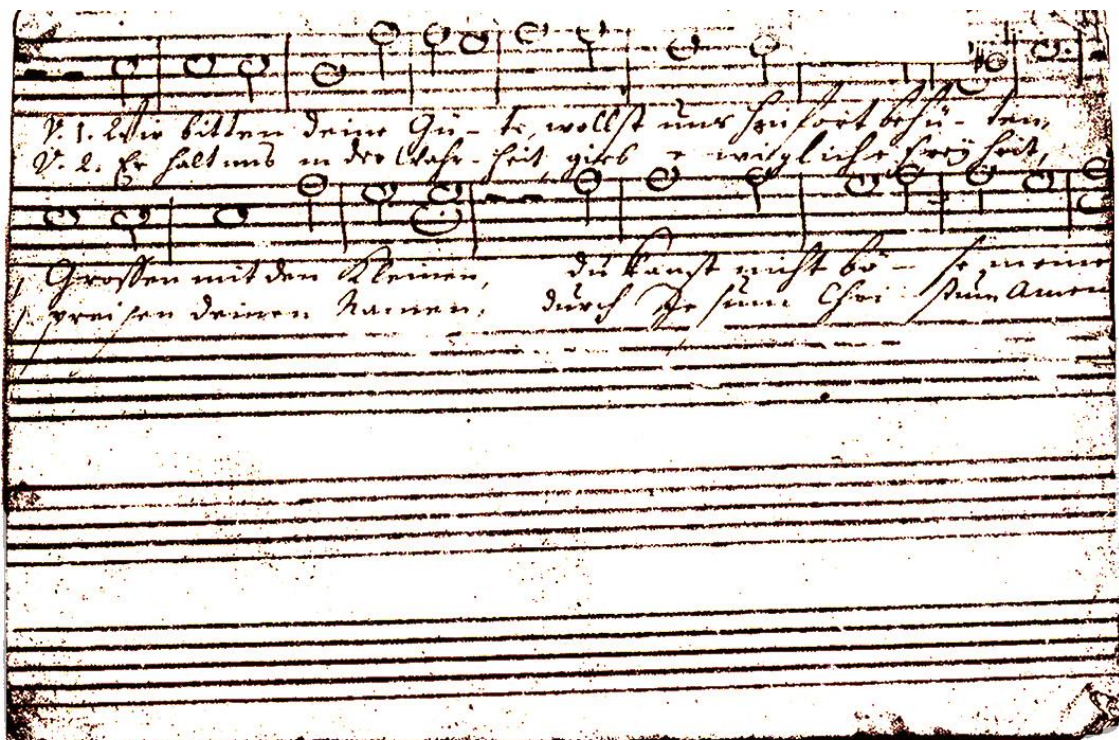 V. 1. Wir bitten deine Gü - te, wollst uns hinfort behü - ten,
V. 2. Er halt uns in der Wahr - heit, gieb e - wigliche Freÿheit,
Grossen mit den Kleinen, du kanst nicht bö - se meinen
preisen deinen Namen, durch Jesum Chri - stum Amen